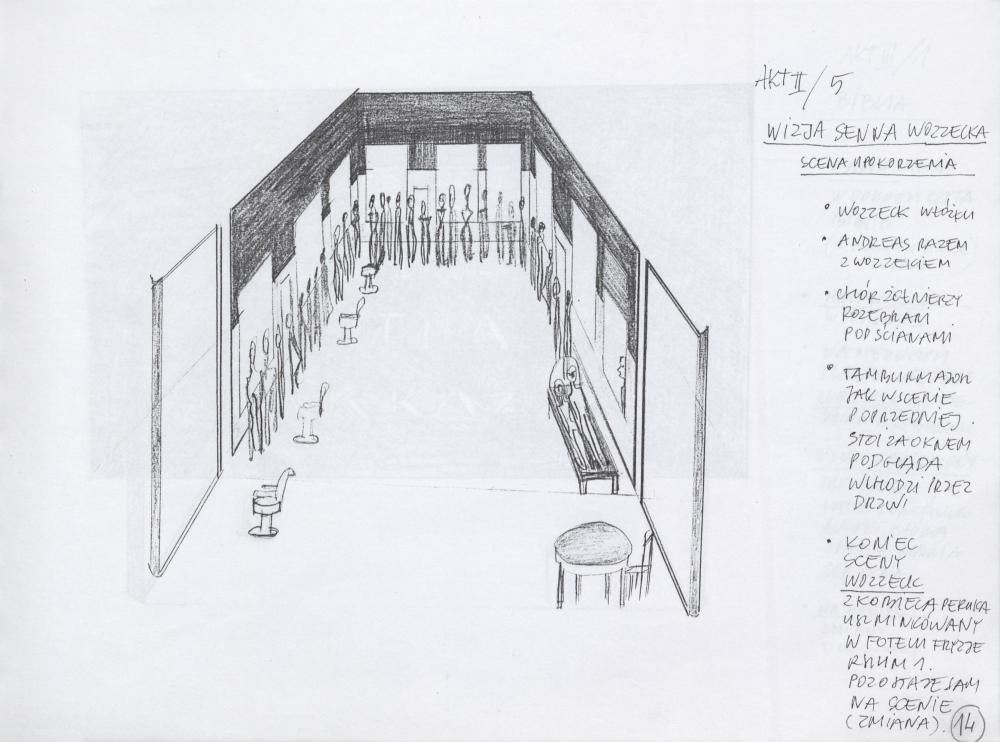 AKT II/5
WIZJA SENNA WOZZECKA
SCENA UPOKORZENIA
• WOZZECK W ŁÓŻKU
• ANDREAS RAZEM
Z WOZZECKIEM
• CHÓR ŻOŁNIERZY
ROZEBRANI
POD ŚCIANAMI
• TAMBURMAJOR
JAK W SCENIE
POPRZEDNIEJ.
STOI ZA OKNEM
PODGLĄDA
WCHODZI PRZEZ
DRZWI
• KONIEC
SCENY
WOZZECK
Z KOBIECĄ PERUKĄ
USZMINKOWANY
W FOTELU FRYZJE
RSKIM 1.
POZOSTAJE SAM
NA SCENIE
(ZMIANA).
14